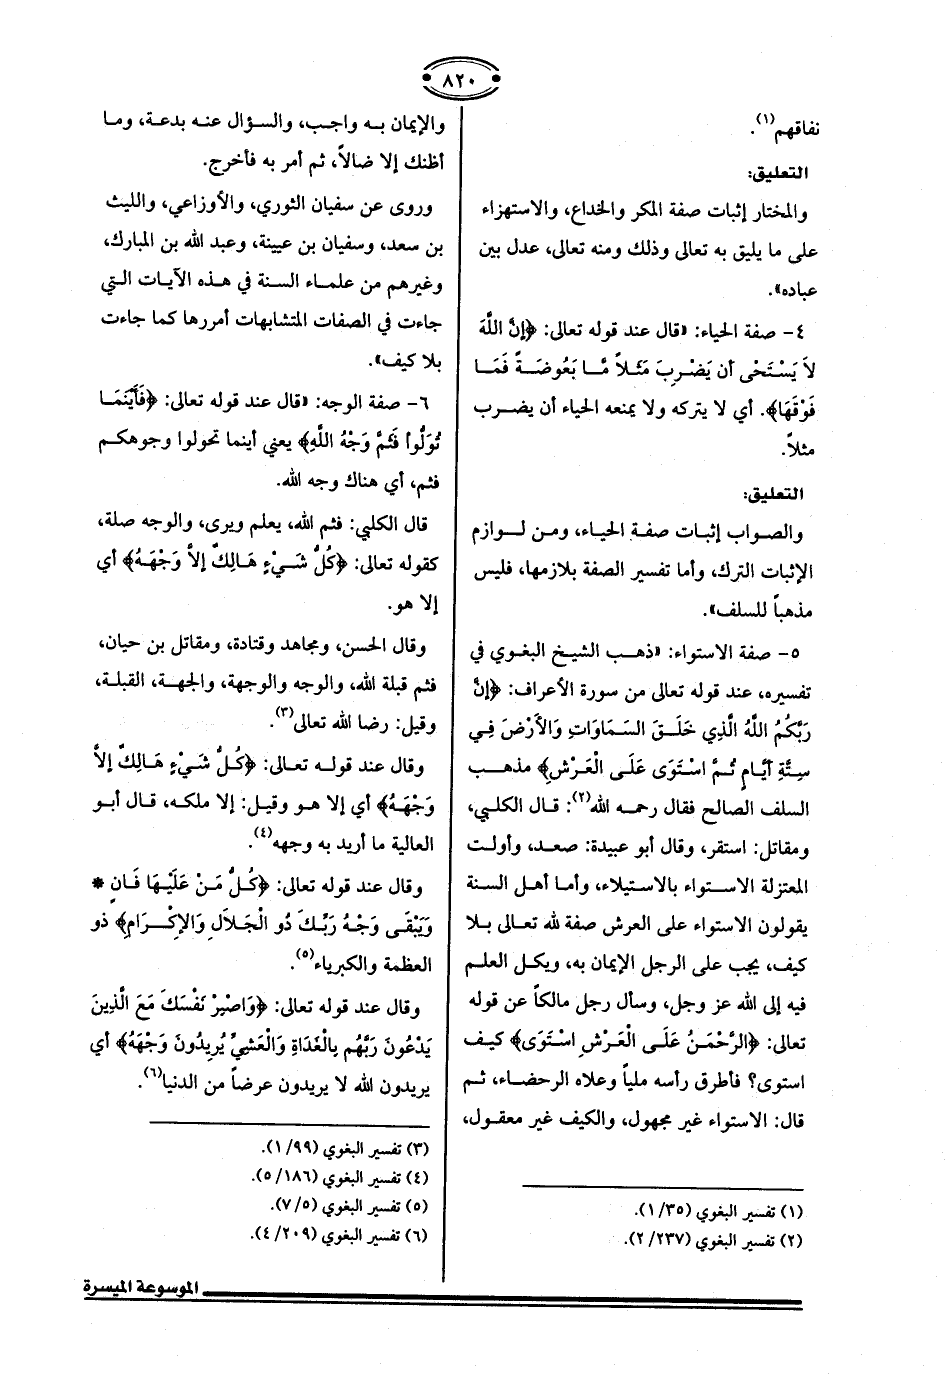 ٨٢٠
نفاقهم(١).
التعليق:
والمختار إثبات صفة المكر والخداع، والاستهزاء
على ما يليق به تعالى وذلك ومنه تعالى، عدل بين
عباده».
٤- صفة الحياء: «قال عند قوله تعالى: ﴿إِنَّ اللَّهَ
لاَ يَسْتَحْي أَن يَضْرِبَ مَثَلاً مَّا بَعُوضَةً فَمَا
فَوْقَهَا﴾. أي لا يتركه ولا يمنعه الحياء أن يضرب
مثلاً.
التعليق:
والصواب إثبات صفة الحياء، ومن لوازم
الإثبات الترك، وأما تفسير الصفة بلازمها، فليس
مذهباً للسلف».
٥- صفة الاستواء: «ذهب الشيخ البغوي في
تفسيره، عند قوله تعالى من سورة الأعراف: ﴿إِنَّ
رَبَّكُمُ اللَّهُ الَّذِي خَلَقَ السَّمَاوَاتِ وَالأَرْضَ فِي
سِتَّةِ أَيَّامٍ ثُمَّ اسْتَوَى عَلَى الْعَرْشِ﴾ مذهب
السلف الصالح فقال رحمه الله(٢): قال الكلبي،
ومقاتل: استقر، وقال أبو عبيدة: صعد، وأولت
المعتزلة الاستواء بالاستيلاء، وأما أهل السنة
يقولون الاستواء على العرش صفة لله تعالى بلا
كيف، يجب على الرجل الإيمان به، ويكل العلم
فيه إلى الله عز وجل، وسأل رجل مالكاً عن قوله
تعالى: ﴿الرَّحْمَنُ عَلَى الْعَرْشِ اسْتَوَى﴾ كيف
استوى؟ فأطرق رأسه ملياً وعلاه الرحضاء، ثم
قال: الاستواء غير مجهول، والكيف غير معقول،
(١) تفسير البغوي (١/٣٥).
(٢) تفسير البغوي (٢/٢٣٧).
والإيمان به واجب، والسؤال عنه بدعة، وما
أظنك إلا ضالاً، ثم أمر به فأخرج.
وروى عن سفيان الثوري، والأوزاعي، والليث
بن سعد، وسفيان بن عيينة، وعبد الله بن المبارك،
وغيرهم من علماء السنة في هذه الآيات التي
جاءت في الصفات المتشابهات أمررها كما جاءت
بلا كيف».
٦- صفة الوجه: «قال عند قوله تعالى: ﴿فَأَيْنَمَا
تُوَلُّوا فَثَمَّ وَجْهُ اللَّهِ﴾ يعني أينما تحولوا وجوهكم
فثم، أي هناك وجه الله.
قال الكلبي: فثم الله، يعلم ويرى، والوجه صلة،
كقوله تعالى: ﴿كُلُّ شَيْءٍ هَالِكٌ إِلاَّ وَجْهَهُ﴾ أي
إلا هو.
وقال الحسن، ومجاهد وقتادة، ومقاتل بن حيان،
فثم قبلة الله، والوجه والوجهة، والجهة، القبلة،
وقيل: رضا الله تعالى(٣).
وقال عند قوله تعالى: ﴿كُلُّ شَيْءٍ هَالِكٌ إِلاَّ
وَجْهَهُ﴾ أي إلا هو وقيل: إلا ملكه، قال أبو
العالية ما أريد به وجهه(٤).
وقال عند قوله تعالى: ﴿كُلُّ مَنْ عَلَيْهَا فَانٍ *
وَيَبْقَى وَجْهُ رَبِّكَ ذُو الْجَلاَلِ وَالإِكْرَامِ﴾ ذو
العظمة والكبرياء(٥).
وقال عند قوله تعالى: ﴿وَاصْبِرْ نَفْسَكَ مَعَ الَّذِينَ
يَدْعُونَ رَبَّهُم بِالْغَدَاةِ وَالْعَشِيِّ يُرِيدُونَ وَجْهَهُ﴾ أي
يريدون الله لا يريدون عرضاً من الدنيا(٦).
(٣) تفسير البغوي (١/٩٩).
(٤) تفسير البغوي (٥/١٨٦).
(٥) تفسير البغوي (٧/٥).
(٦) تفسير البغوي (٤/٢٠٩).
الموسوعة الميسرة